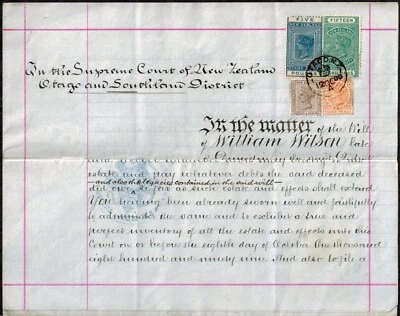 FIVE
FIFTEEN
In the Supreme Court of New Zealand
Otago and Southland District
In the matter of the Will
of William Wilson late
estate and pay whatever debts she said deceased
and also the legacies contained in the said will
did owe so far as such estate and effects shall extend
You having been already sworn well and faithfully
to administer the same and to exhibit a true and
perfect inventory of all the estate and effects unto this
Court on or before the eighth day of October One thousand
eight hundred and ninety nine And also to file a